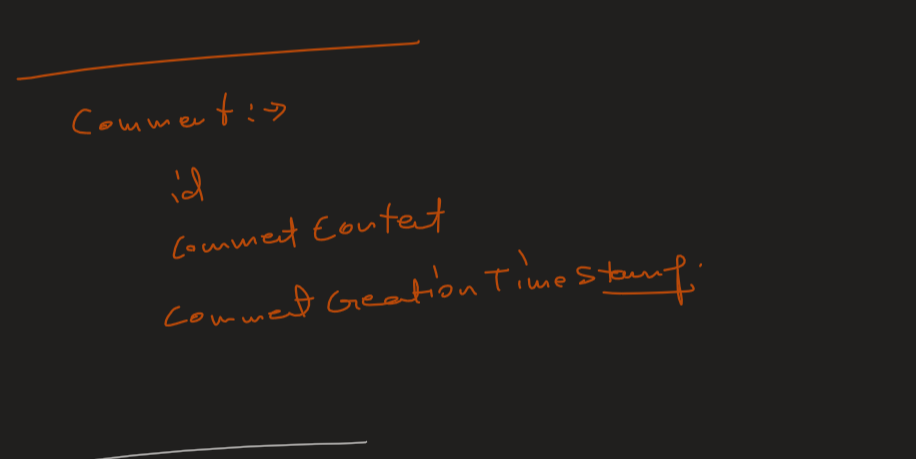 Comment :->
id
Comment Content
Comment Creation Time Stamp.